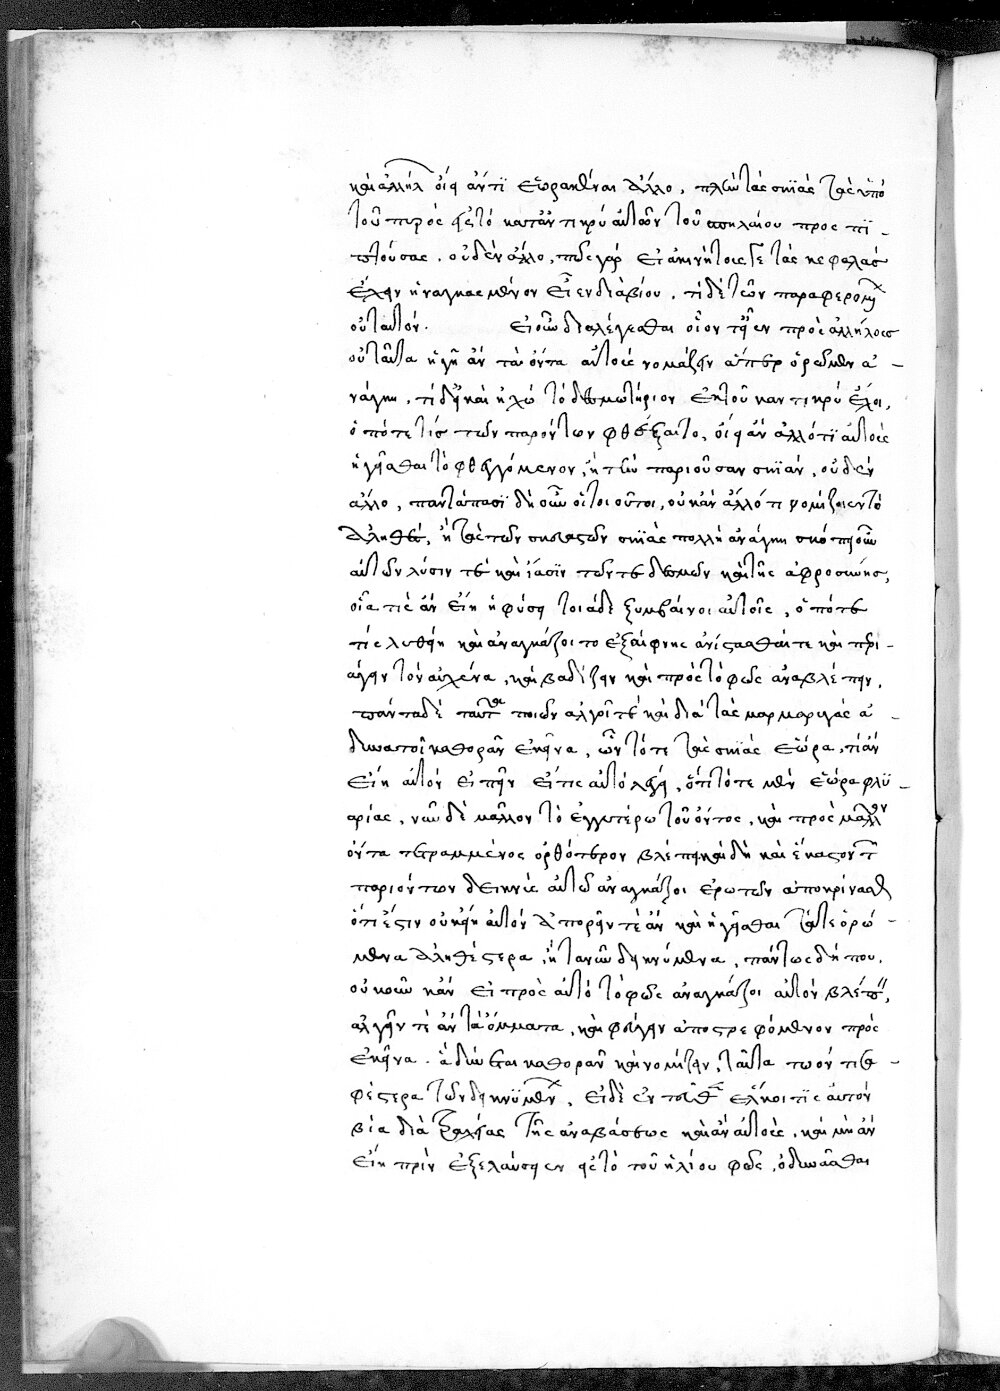 καὶ ἀλλήλ οἴει ἄν τι ἑωρακέναι ἄλλο, πλὴν τὰς σκιὰς τὰς ὑπὸ
τοῦ πυρὸς εἰς τὸ καταντικρὺ αὐτῶν τοῦ σπηλαίου προσπι-
πτούσας. οὐδὲν ἄλλο, πῶς γὰρ εἰ ἀκινήτους γε τὰς κεφαλὰς
ἔχειν ἠναγκασμένον εἶεν διὰ βίου. τί δὲ τῶν παραφερομ
οὐ ταὐτόν. εἰ οὖν διαλέγεσθαι οἷοί τ' εἶεν πρὸς ἀλλήλους
οὐ ταῦτα ἡγῇ ἂν τὰ ὄντα αὐτοὺς νομάζειν ἅπερ ὁρῶμεν ἀ-
νάγκη, τί δ' εἰ καὶ ἠχὼ τὸ δεσμωτήριον ἐκ τοῦ καντικρὺ ἔχοι,
ὁπότε τίς τῶν παρόντων φθέγξαιτο, οἴει ἂν ἄλλό τι αὐτοὺς
ἡγεῖσθαι τὸ φθεγγόμενον, ἢ τὴν παριοῦσαν σκιάν, οὐδὲν
ἄλλο, παντάπασι δὴ οὖν οἱ τοιοῦτοι, οὐκ ἂν ἄλλό τι νομίζοιεν τὸ
ἀληθὲς, ἢ τὰς τῶν σκευαστῶν σκιὰς πολλὴ ἀνάγκη σκόπει οὖν
αὐτῶν λύσιν τὲ καὶ ἴασιν τῶν τε δεσμῶν καὶ τῆς ἀφροσύνης,
οἵα τις ἂν εἴη ἡ φύσει τοιάδε ξυμβαίνοι αὐτοῖς, ὁπότε
τίς λυθείη καὶ ἀναγκάζοιτο ἐξαίφνης ἀνίστασθαί τε καὶ περι-
άγειν τὸν αὐχένα, καὶ βαδίζειν καὶ πρὸς τὸ φῶς ἀναβλέπειν,
πάντα δὲ ταῦτ ποιῶν ἀλγοῖ τὲ καὶ διὰ τὰς μαρμαρυγὰς ἀ-
δυνατοῖ καθορᾶν ἐκεῖνα, ὧν τότε τὰς σκιὰς ἑώρα, τί ἂν
εἴη αὐτὸν εἰπεῖν εἴ τις αὐτῶ λέγει, ὅτι τότε μὲν ἑώρα φλυ-
αρίας, νῦν δὲ μᾶλλον τὸ ἐγγυτέρω τοῦ ὄντος, καὶ πρὸς μᾶλλον
ὄντα τετραμμένος ὀρθότερον βλέπει καὶ δὴ καὶ ἕκαστον τῶν
παριόντων δεικνὺς αὐτῶ ἀναγκάζοι ἐρωτῶν ἀποκρίνασθ
ὅτι ἐστιν οὐκ ἂν αὐτὸν ἀπορεῖν τὲ ἂν καὶ ἡγεῖσθαι τὰ τε ὁρώ-
μενα ἀληθέστερα, ἢ τὰ νῦν δεικνύμενα, πάντως δήπου,
οὐκοῦν κἂν εἰ πρὸς αὐτὸ τὸ φῶς ἀναγκάζοι αὐτὸν βλέπειν,
ἀλγεῖν τὲ ἂν τὰ ὄμματα, καὶ φεύγειν ἀποστρεφόμενον πρὸς
ἐκεῖνα. ἃ δύναται καθορᾶν καὶ νομίζειν, ταῦτα τω ὄντι σα-
φέστερα τῶν δεικνυμέν. εἰ δὲ ἐντεῦθ ἕλκοι τις αὐτὸν
βία διὰ τραχείας τῆς ἀναβάσεως καὶ ἀνάντους, καὶ μὴ ἀν
είη πρὶν ἐξελκύσειεν εἰς τὸ τοῦ ἡλίου φῶς, ὀδυνᾶσθαι